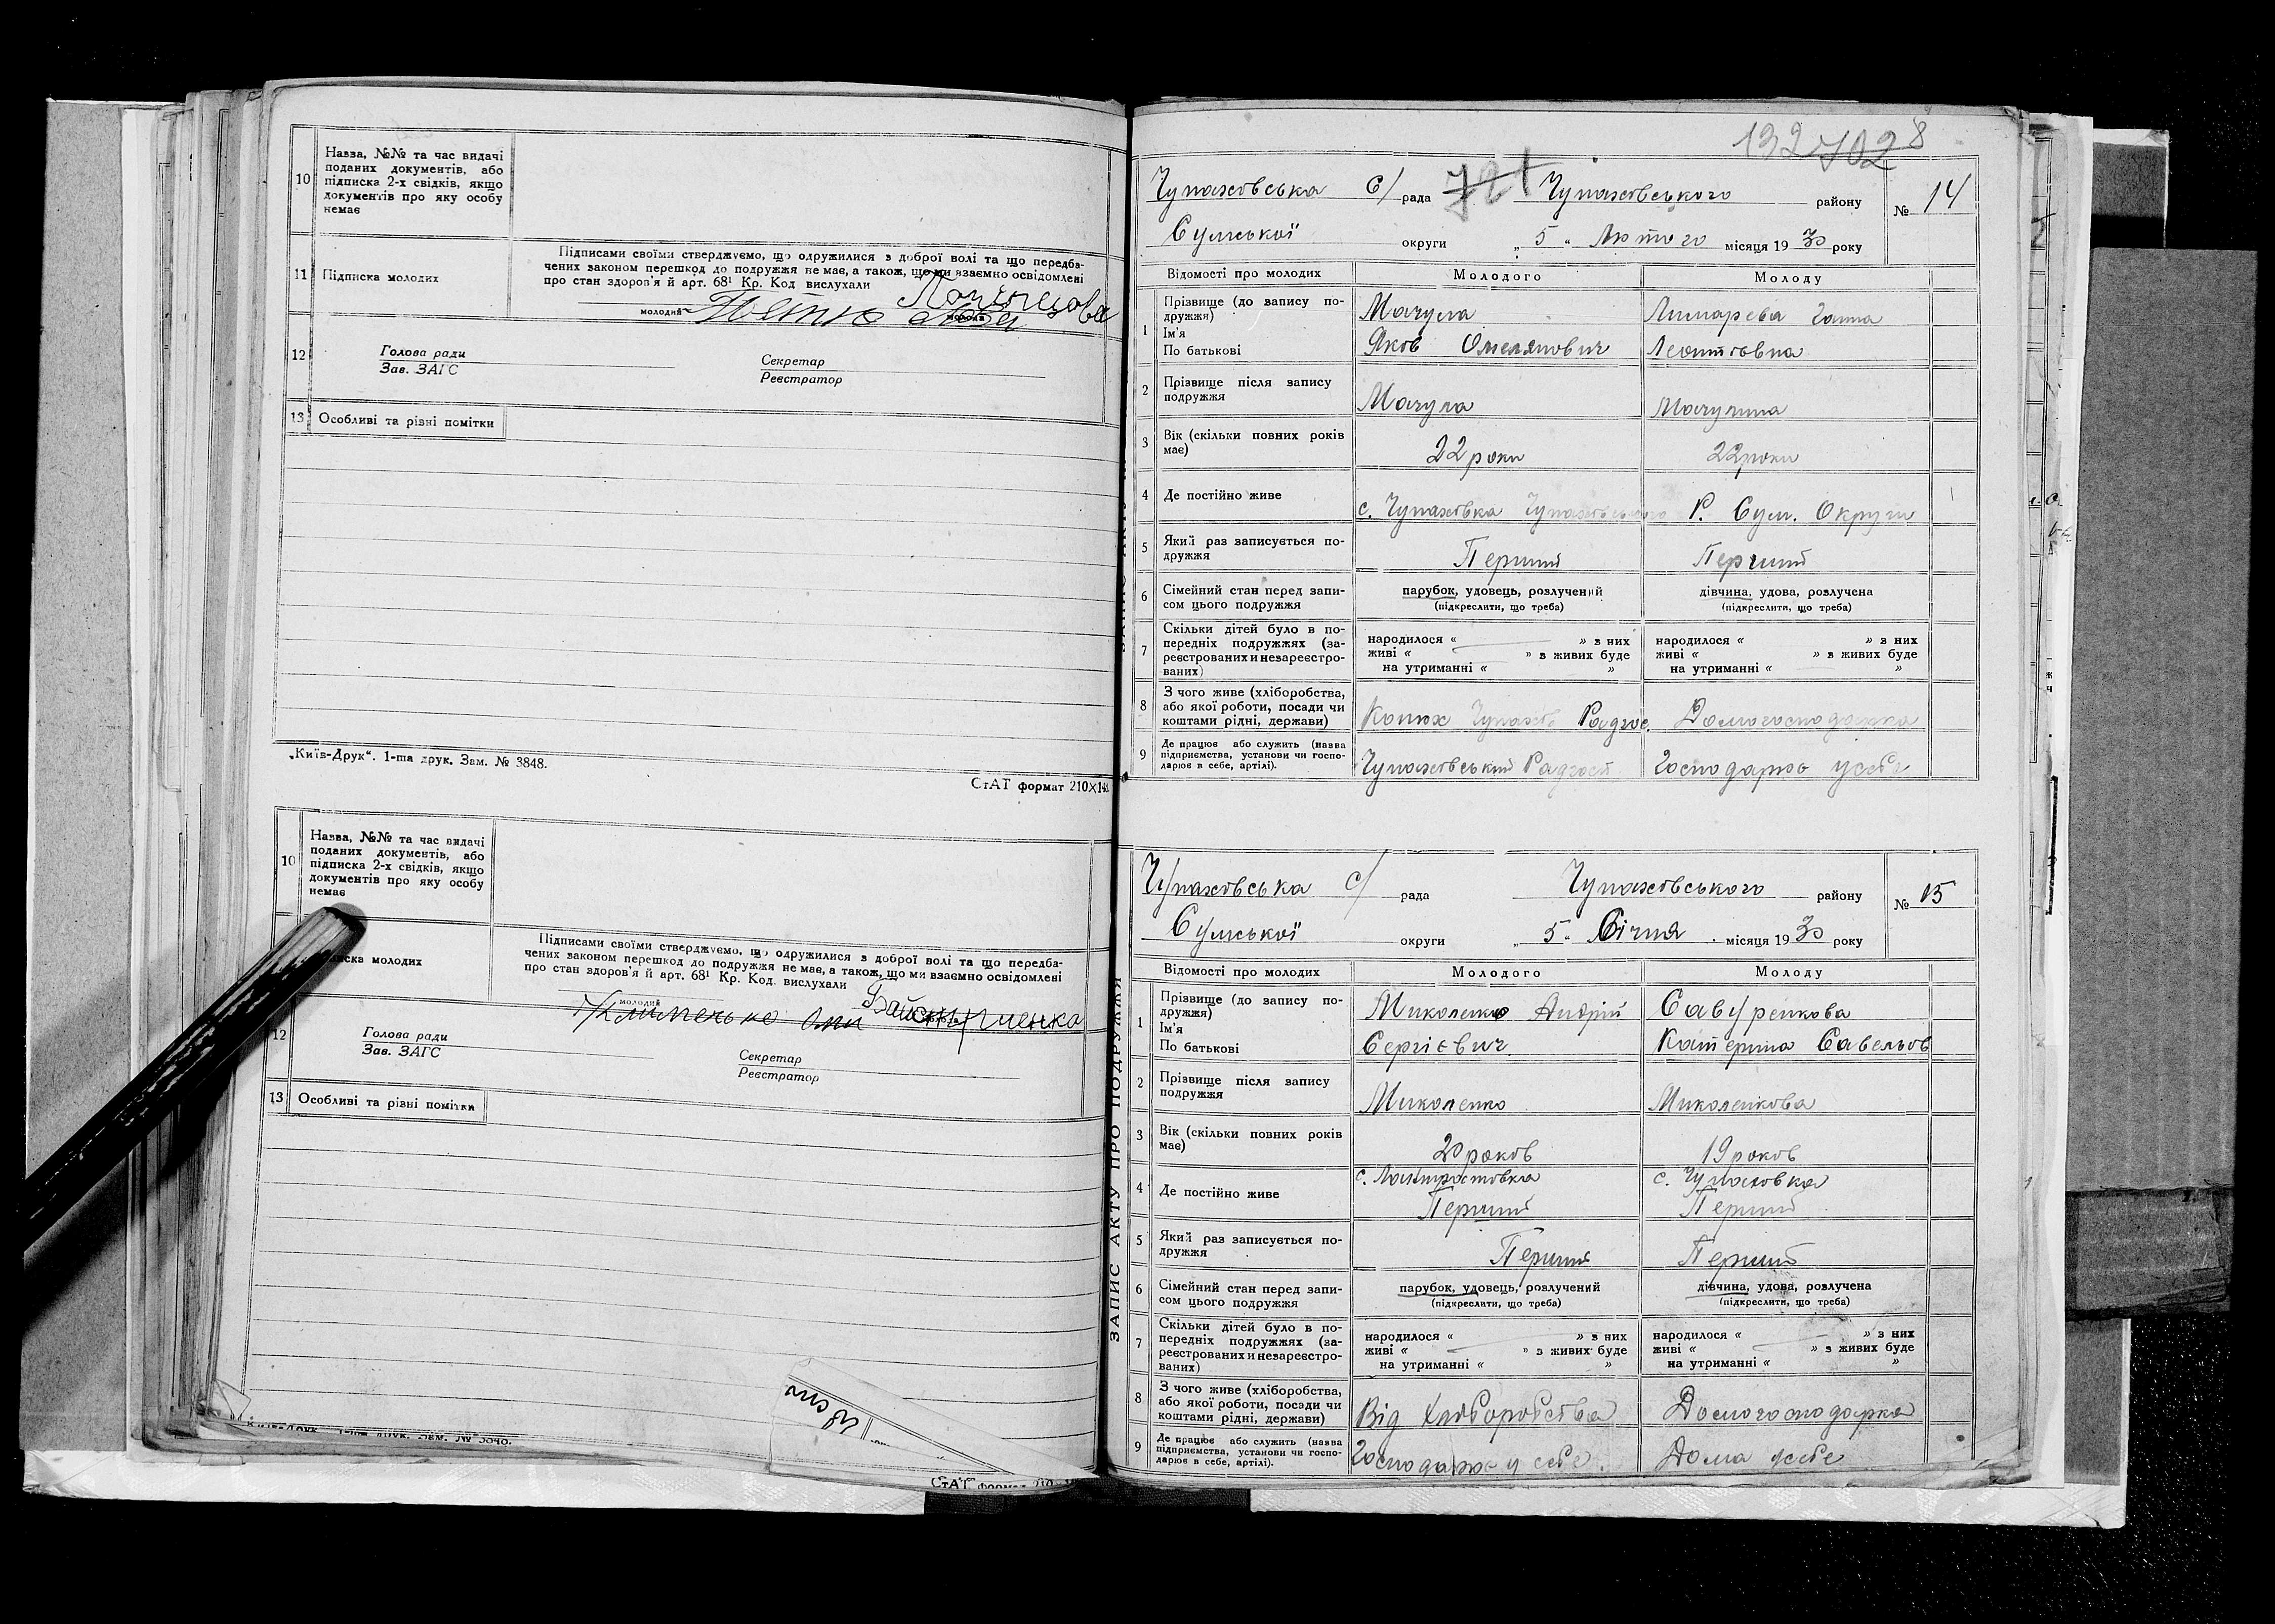 10
Назва, №№ та час видачі
поданих документів, або
підписка 2-х свідків, якщо
документів про яку особу
немає
11
Підписка молодих
Підписами своїми стверджуємо, що одружилися з доброї волі та що передба-
чених законом перешкод до подружжя не має, а також, що ми взаємно освідомлені
про стан здоров'я й арт. 68¹ Кр. Код вислухали
молодий
12
Голова ради
Зав. ЗАГС
Секретар
Реєстратор
13 Особливі та різні помітки
„Київ-Друк“. 1-ша друк. Зам. № 3848.
СтАТ формат 210×148
10
Назва, №№ та час видачі
поданих документів, або
підписка 2-х свідків, якщо
документів про яку особу
немає
молодих
Підписами своїми стверджуємо, що одружилися з доброї волі та що передба-
чених законом перешкод до подружжя не має, а також, що ми взаємно освідомлені
про стан здоров'я й арт. 68¹ Кр. Код. вислухали
молодий
12
Голова ради
Зав. ЗАГС
Секретар
Реєстратор
13 Особливі та різні помітки
СтАТ формат 210
ЗАПИС АКТУ ПРО ПОДРУЖЖЯ
132 702 8
721
Чупахівська С/ рада Чупахівського району № 14
Сумської округи „5“ Лютого місяця 1930 року
Відомості про молодих Молодого Молоду
1
Прізвище (до запису по-
дружжя)
Ім'я
По батькові
Мачула
Яков Омелянович
Лимарева Ганна
Леонтовна
2
Прізвище після запису
подружжя
Мачула
Мачулина
3
Вік (скільки повних років
має)
22 роки
22 роки
4
Де постійно живе
с. Чупахівка Чупахівського Р. Сум. Округи
5
Який раз записується по-
дружжя
Перший
Перший
6
Сімейний стан перед запи-
сом цього подружжя
парубок, удовець, розлучений
(підкреслити, що треба)
дівчина, удова, розлучена
(підкреслити, що треба)
7
Скільки дітей було в по-
передніх подружжях (за-
реєстрованих и незареєстро-
ваних)
народилося « » з них
живі « » з живих буде
на утриманні « »
народилося « » з них
живі « » з живих буде
на утриманні « »
8
З чого живе (хліборобства,
або якої роботи, посади чи
коштами рідні, держави)
Конюх Чупахів Радгос.
Домогосподарка
9
Де працює або служить (назва
підприємства, установи чи госпо-
дарює в себе, артілі).
Чупахівський Радгосп
Господарює у себе
Чупахівська С/ рада Чупахівського району № 15
Сумської округи „5“ Січня місяця 1930 року
Відомості про молодих Молодого Молоду
1
Прізвище (до запису по-
дружжя)
Ім'я
По батькові
Миколенко Андрій
Сергієвич
Савуренкова
Катерина Савельов
2
Прізвище після запису
подружжя
Миколенко
Миколенкова
3
Вік (скільки повних років
має)
20 роков
19 роков
4
Де постійно живе
с.
Перший
с. Чупаховка
Перший
5
Який раз записується по-
дружжя
Перший
Перший
6
Сімейний стан перед запи-
сом цього подружжя
парубок, удовець, розлучений
(підкреслити, що треба)
дівчина, удова, розлучена
(підкреслити, що треба)
7
Скільки дітей було в по-
передніх подружжях (за-
реєстрованих и незареєстро-
ваних)
народилося « » з них
живі « » з живих буде
на утриманні « »
народилося « » з них
живі « » з живих буде
на утриманні « »
8
З чого живе (хліборобства,
або якої роботи, посади чи
коштами рідні, держави)
Від Хліборобства
Домогосподарка
9
Де працює або служить (назва
підприємства, установи чи госпо-
дарює в себе, артілі).
Господарює у себе
Дома усебе